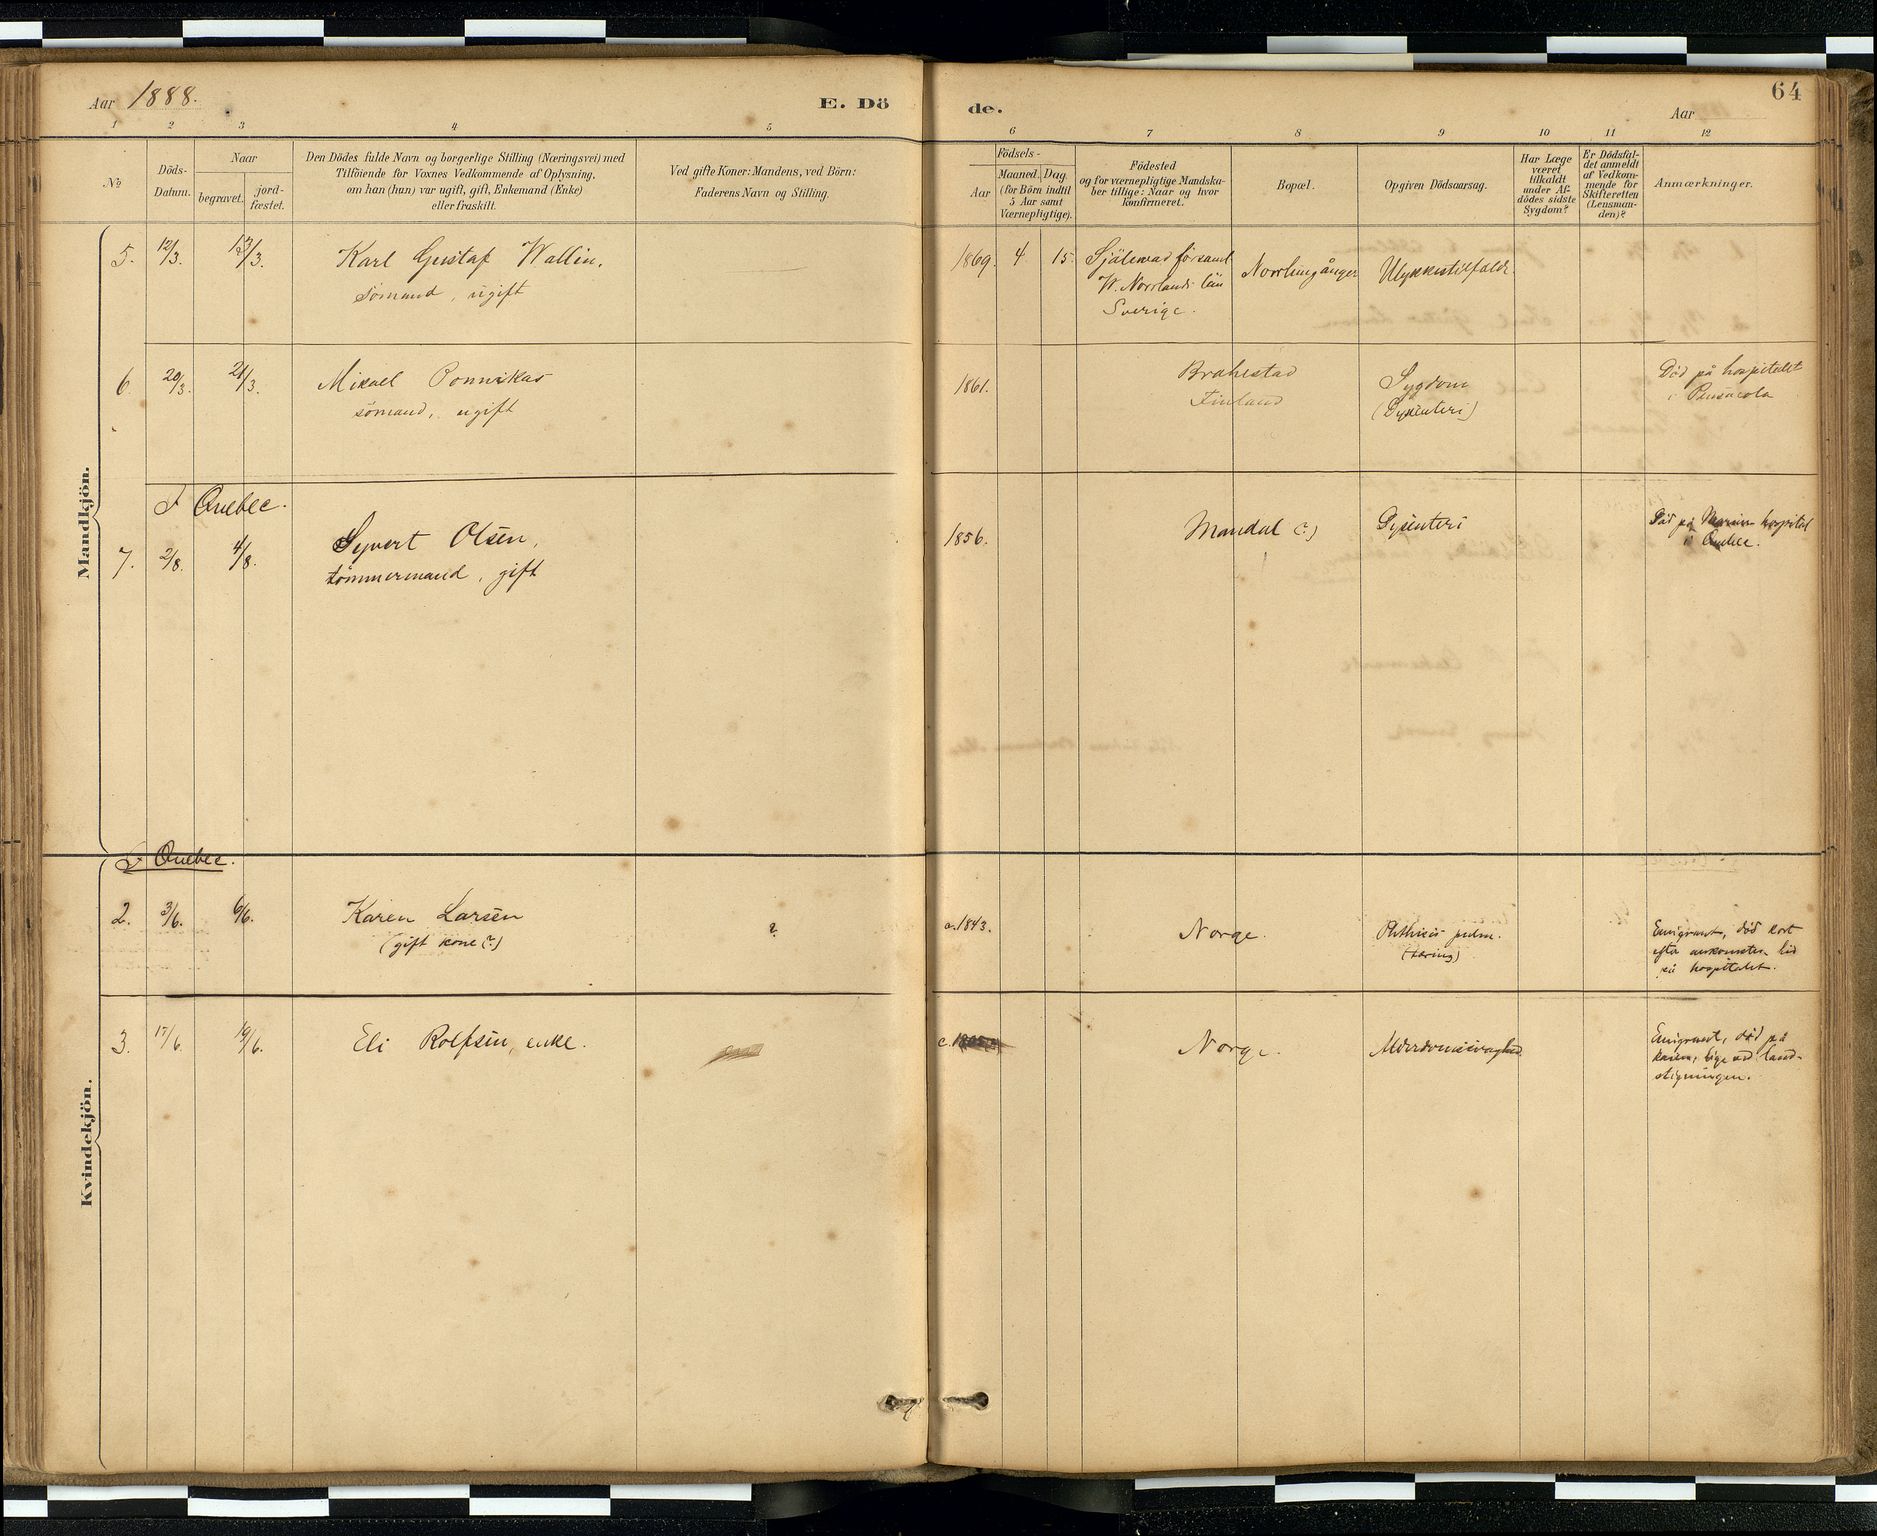 Aar 1888.
E. Dö
de.
Aar
64
1 2 3 4 5 6 7 8 9 10 11 12
№
Döds-
Datum.
Naar
begravet.
jord-
fæstet.
Den Dödes fulde Navn og borgerlige Stilling (Næringsvei) med
Tilföiende for Voxnes Vedkommende af Oplysning,
om han (hun) var ugift, gift, Enkemand (Enke)
eller fraskilt.
Ved gifte Koner: Mandens, ved Börn:
Faderens Navn og Stilling.
Födsels-
Aar
Maaned.
Dag.
(for Börn indtil
5 Aar samt
Værnepligtige).
Födested
og for værnepligtige Mandska-
ber tillige: Naar og hvor
konfirmeret.
Bopæl.
Opgiven Dödsaarsag.
Har Læge
været
tilkaldt
under Af-
dödes sidste
Sygdom?
Er Dödsfal-
det anmeldt
af Vedkom-
mende for
Skifteretten
(Lensman-
den)?
Anmærkninger.
Mandkjön.
5. 12/3. 13/3. Karl Gustaf Wallin,
sömand, ugift
1869. 4 15. Själevad församl
W. Norrlands län
Sverige.
Ulykkestilfælde.
6. 20/3. 21/3. Mikael
sömand, ugift
1861.
Brahestad
Finland
Sygdom
(Dysenteri)
Död på hospitalet
i Pensacola
I Quebec.
7. 2/8. 4/8. Syvert Olsen,
tömmermand, gift
1856.
Mandal (?)
Dysenteri
Död på Marine hospital
i Quebec.
Kvindekjön.
I Quebec.
2. 3/6. 6/6. Karen Larsen
(gift kone?)
?
c. 1843.
Norge.
Phthisis pulm.
(tæring)
Emigrant, död kort
efter ankomsten hid
på hospitalet.
3. 17/6. 19/6. Eli Rolfsen, enke.
c.
Norge.
Alderdomssvaghed.
Emigrant, död på
kaien, lige ved land-
stigningen.